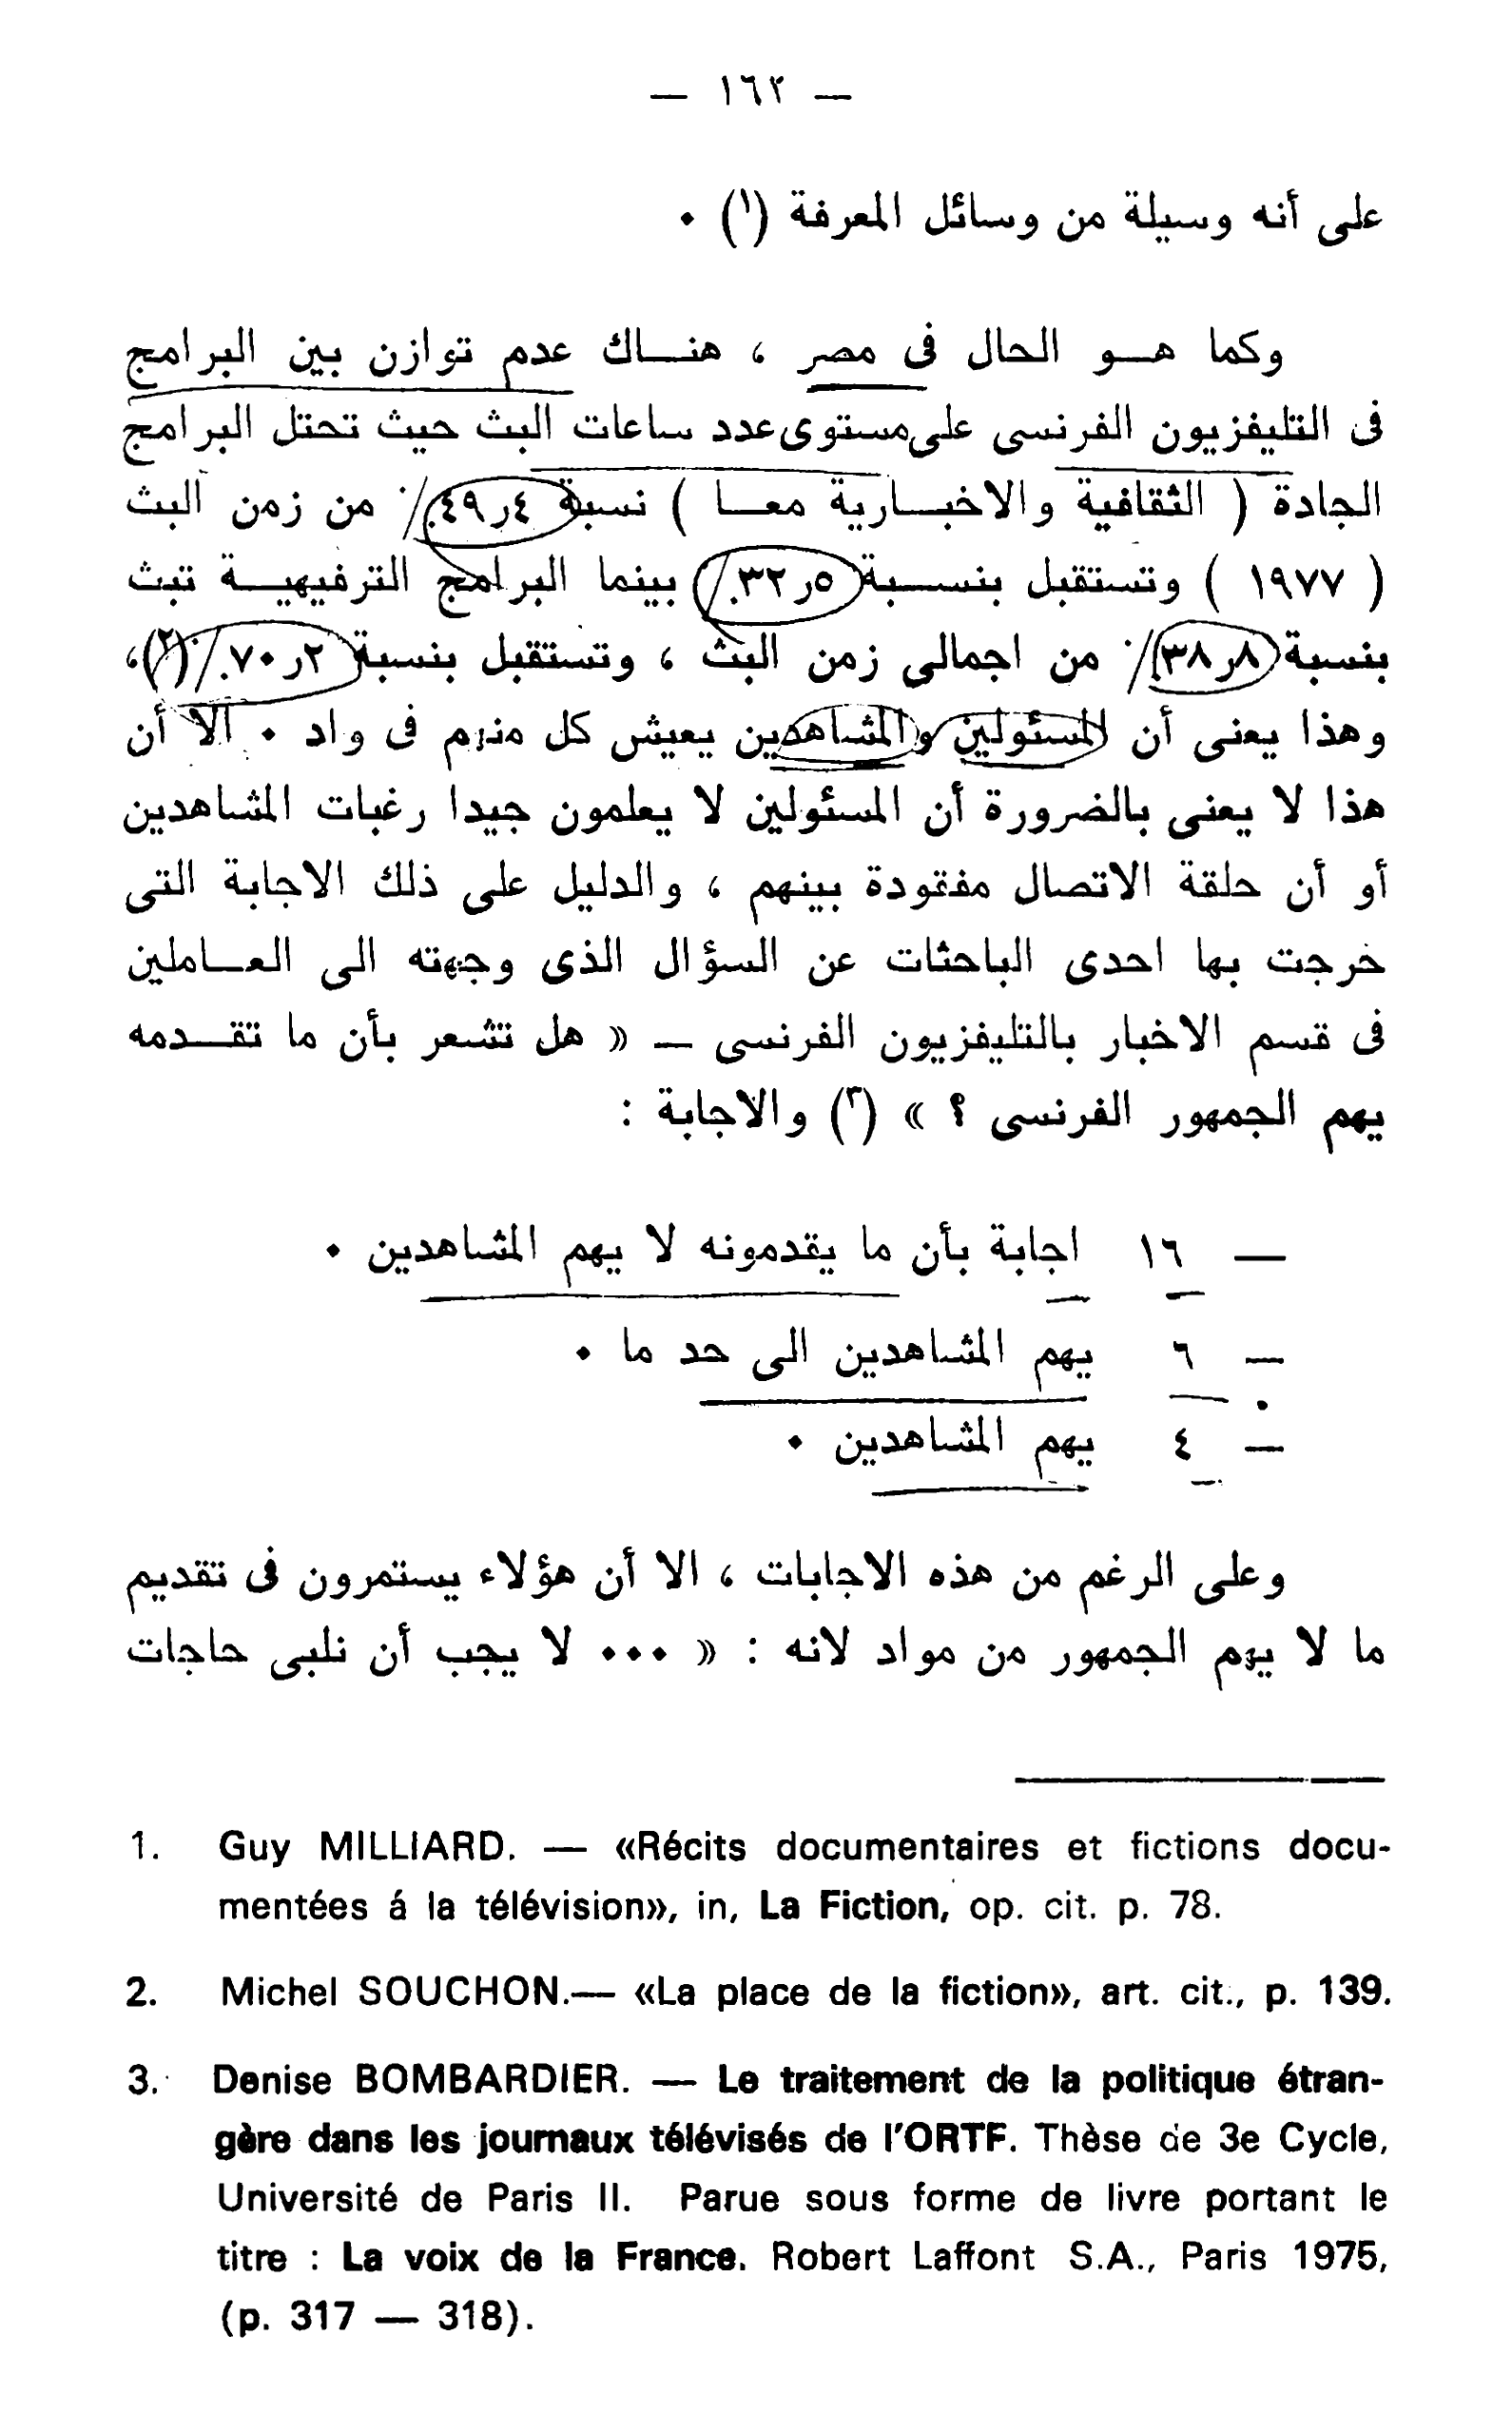 — ١٦٣ —
على أنه وسيلة من وسائل المعرفة (١) ٠
وكما هــو الحال فى مصر ، هنــاك عدم توازن بين البرامج
فى التليفزيون الفرنسى على مستوى عدد ساعات البث حيث تحتل البرامج
الجادة ( الثقافية والاخبــارية معــا ) نسبة ٤ر٤٩٪ من زمن البث
( ١٩٧٧ ) وتستقبل بنســبة ٥ر٣٢٪ بينما البرامج الترفيهيــة تبث
بنسبة ٨ر٣٨٪ من اجمالى زمن البث ، وتستقبل بنسبة ٢ر٧٠٪ (٢)،
وهذا يعنى أن المسئولين والمشاهدين يعيش كل منهم فى واد ٠ الا أن
هذا لا يعنى بالضرورة أن المسئولين لا يعلمون جيدا رغبات المشاهدين
أو أن حلقة الاتصال مفقودة بينهم ، والدليل على ذلك الاجابة التى
خرجت بها احدى الباحثات عن السؤال الذى وجهته الى العــاملين
فى قسم الاخبار بالتليفزيون الفرنسى — « هل تشعر بأن ما تقــدمه
يهم الجمهور الفرنسى ؟ » (٣) والاجابة :
— ١٦ اجابة بأن ما يقدمونه لا يهم المشاهدين ٠
— ٦ يهم المشاهدين الى حد ما ٠
— ٤ يهم المشاهدين ٠
وعلى الرغم من هذه الاجابات ، الا أن هؤلاء يستمرون فى تقديم
ما لا يهم الجمهور من مواد لانه : « ٠٠٠ لا يجب أن نلبى حاجات
1. Guy MILLIARD. — «Récits documentaires et fictions docu-
mentées á la télévision», in, La Fiction, op. cit. p. 78.
2. Michel SOUCHON.— «La place de la fiction», art. cit., p. 139.
3. Denise BOMBARDIER. — Le traitement de la politique étran-
gère dans les journaux télévisés de l'ORTF. Thèse de 3e Cycle,
Université de Paris II. Parue sous forme de livre portant le
titre : La voix de la France. Robert Laffont S.A., Paris 1975,
(p. 317 — 318).